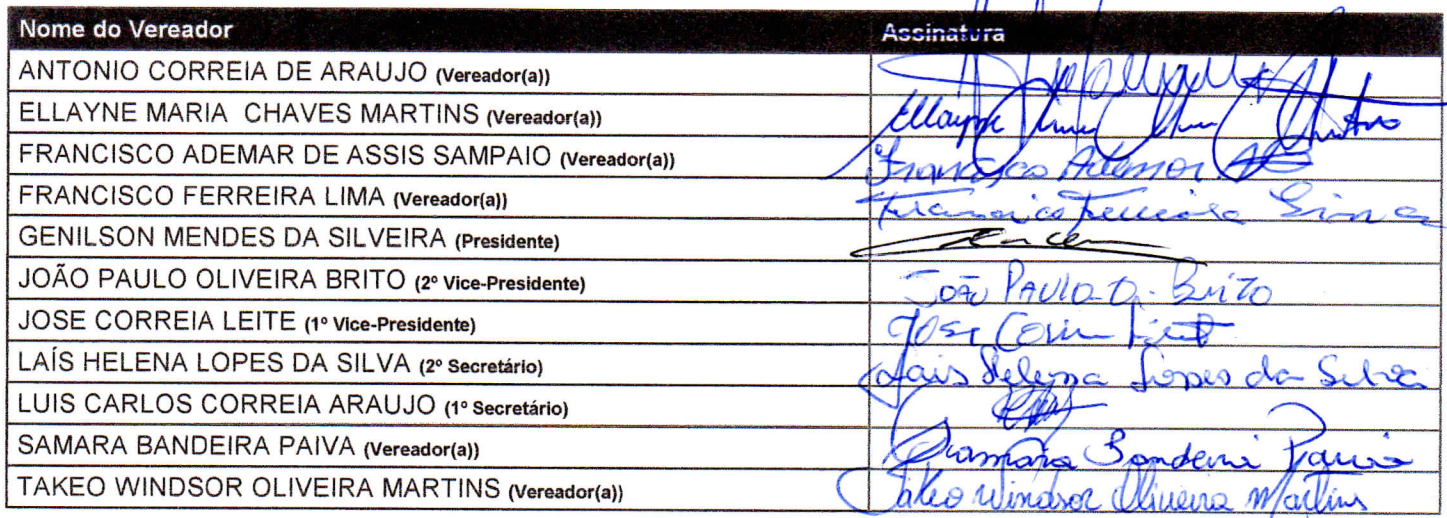 Nome do Vereador Assinatura
ANTONIO CORREIA DE ARAUJO (Vereador(a))
ELLAYNE MARIA CHAVES MARTINS (Vereador(a)) Ellayne
FRANCISCO ADEMAR DE ASSIS SAMPAIO (Vereador(a)) Francisco Ademar
FRANCISCO FERREIRA LIMA (Vereador(a)) Francisco Ferreira Lima
GENILSON MENDES DA SILVEIRA (Presidente)
JOÃO PAULO OLIVEIRA BRITO (2º Vice-Presidente) João PAULO O. Brito
JOSE CORREIA LEITE (1º Vice-Presidente) Jose
LAÍS HELENA LOPES DA SILVA (2º Secretário) Lais Helena Lopes da Silva
LUIS CARLOS CORREIA ARAUJO (1º Secretário)
SAMARA BANDEIRA PAIVA (Vereador(a)) Samara Bandeira Paiva
TAKEO WINDSOR OLIVEIRA MARTINS (Vereador(a)) Takeo Windsor Oliveira Martins